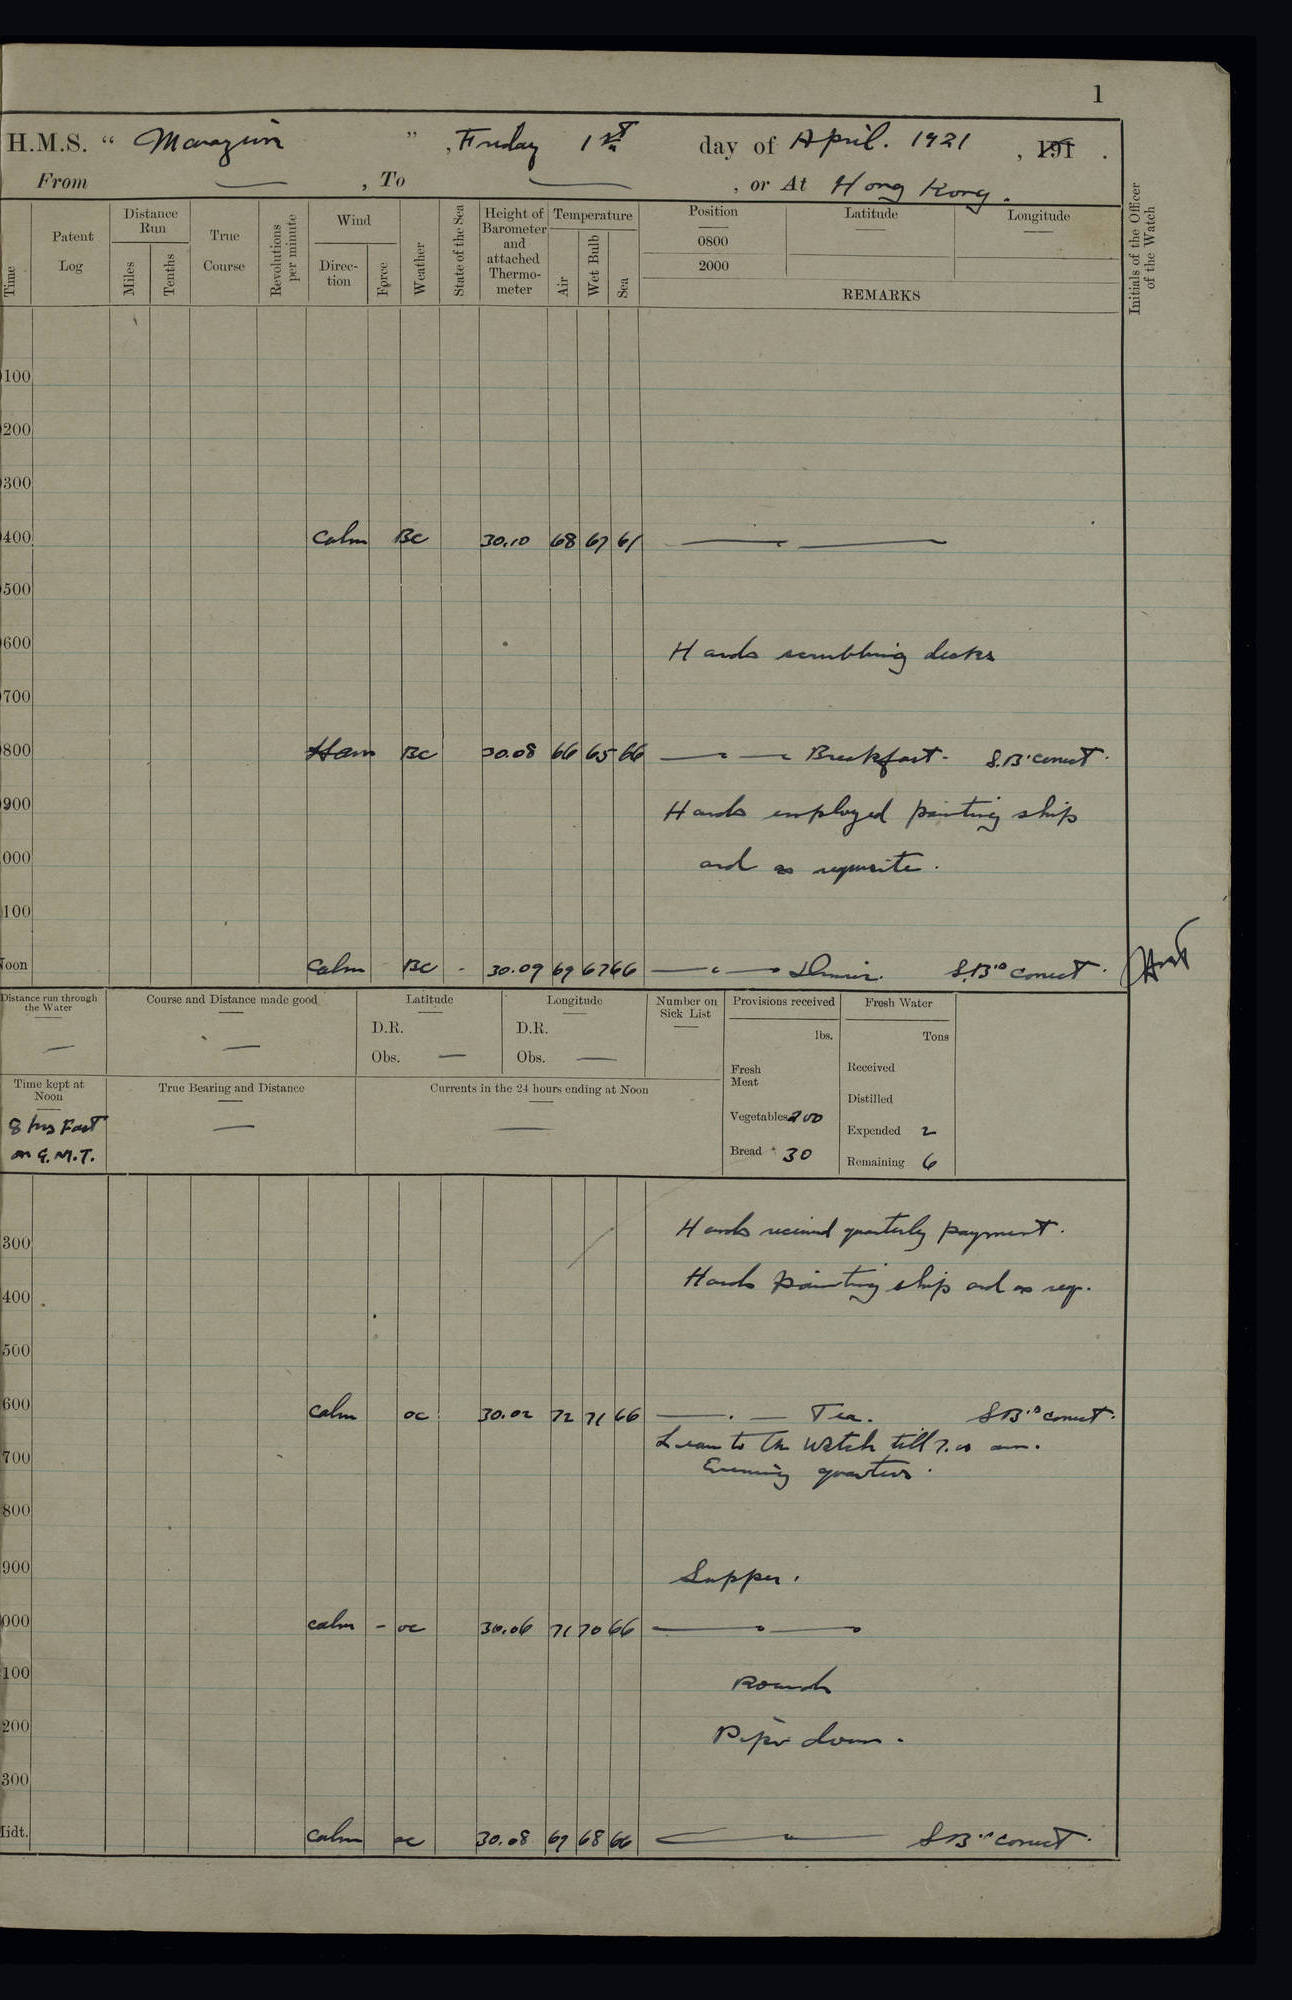 1
H.M.S. “ Marazion ” , Friday 1st day of April. 1921 , 191 .
From — , To — , or At Hong Kong.
Time
Patent Log
Distance Run
Miles
Tenths
True Course
Revolutions per minute
Wind
Direction
Force
Weather
State of the Sea
Height of Barometer and attached Thermometer
Temperature
Air
Wet Bulb
Sea
Position
0800
2000
Latitude
Longitude
REMARKS
Initials of the Officer of the Watch
100
200
300
400 Calm BC 30.10 68 67 61
500
600 Hands scrubbing decks
700
800 BC 30.08 66 65 66 Breakfast. S.B. correct.
900 Hands employed painting ship
000 and as requisite.
100
Noon Calm BC - 30.09 69 67 66 Dinner. S.B.s correct.
Distance run through the Water —
Course and Distance made good —
Latitude
D.R.
Obs. —
Longitude
D.R.
Obs. —
Number on Sick List
Provisions received
lbs.
Fresh Meat
Vegetables 200
Bread 30
Fresh Water
Tons
Received
Distilled
Expended 2
Remaining 6
Time kept at Noon
8 hrs Fast
on G.M.T.
True Bearing and Distance —
Currents in the 24 hours ending at Noon —
300 Hands received quarterly payment.
400 Hands painting ship and as req.
500
600 Calm oc 30.02 72 71 66 Tea. S.B.s correct.
Leave to the Watch till 7.0 am.
700 Evening quarters.
800
900 Supper.
000 calm - oc 30.06 71 70 66
100 Rounds
200 Pipe down.
300
Midt. Calm oc 30.08 69 68 66 S.B.s correct.